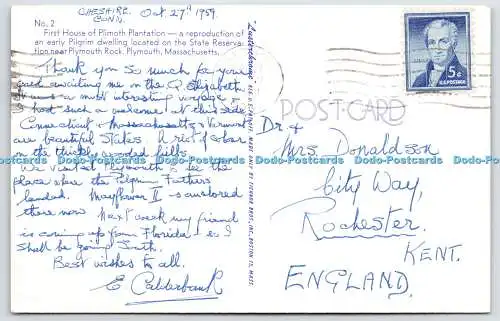 CHESHIRE. Oct 27th 1959.
CONN.
No. 2
First House of Plimoth Plantation — a reproduction of
an early Pilgrim dwelling located on the State Reserva-
tion near Plymouth Rock, Plymouth, Massachusetts.
Thank you so much for your
card awaiting me on the Q. Elizabeth
it was a most interesting voyage
I had such a welcome at this side
Connecticut & Massachusetts & Vermont
are beautiful States. A riot of colour
on the thickly wooded hills.
We visited Plymouth to see the
place where the Pilgrim Fathers
landed. Mayflower II is anchored
there now. Next week my friend
is coming up from Florida & so I
shall be going South.
Best wishes to all.
E Calderbank
POST CARD
5¢
U.S. POSTAGE
Dr. &
Mrs Donaldson
City Way,
Rochester.
KENT.
ENGLAND.
Dodo-Postcards Dodo-Postcards Dodo-Postcards Dodo-Postcards Dodo-Postcards